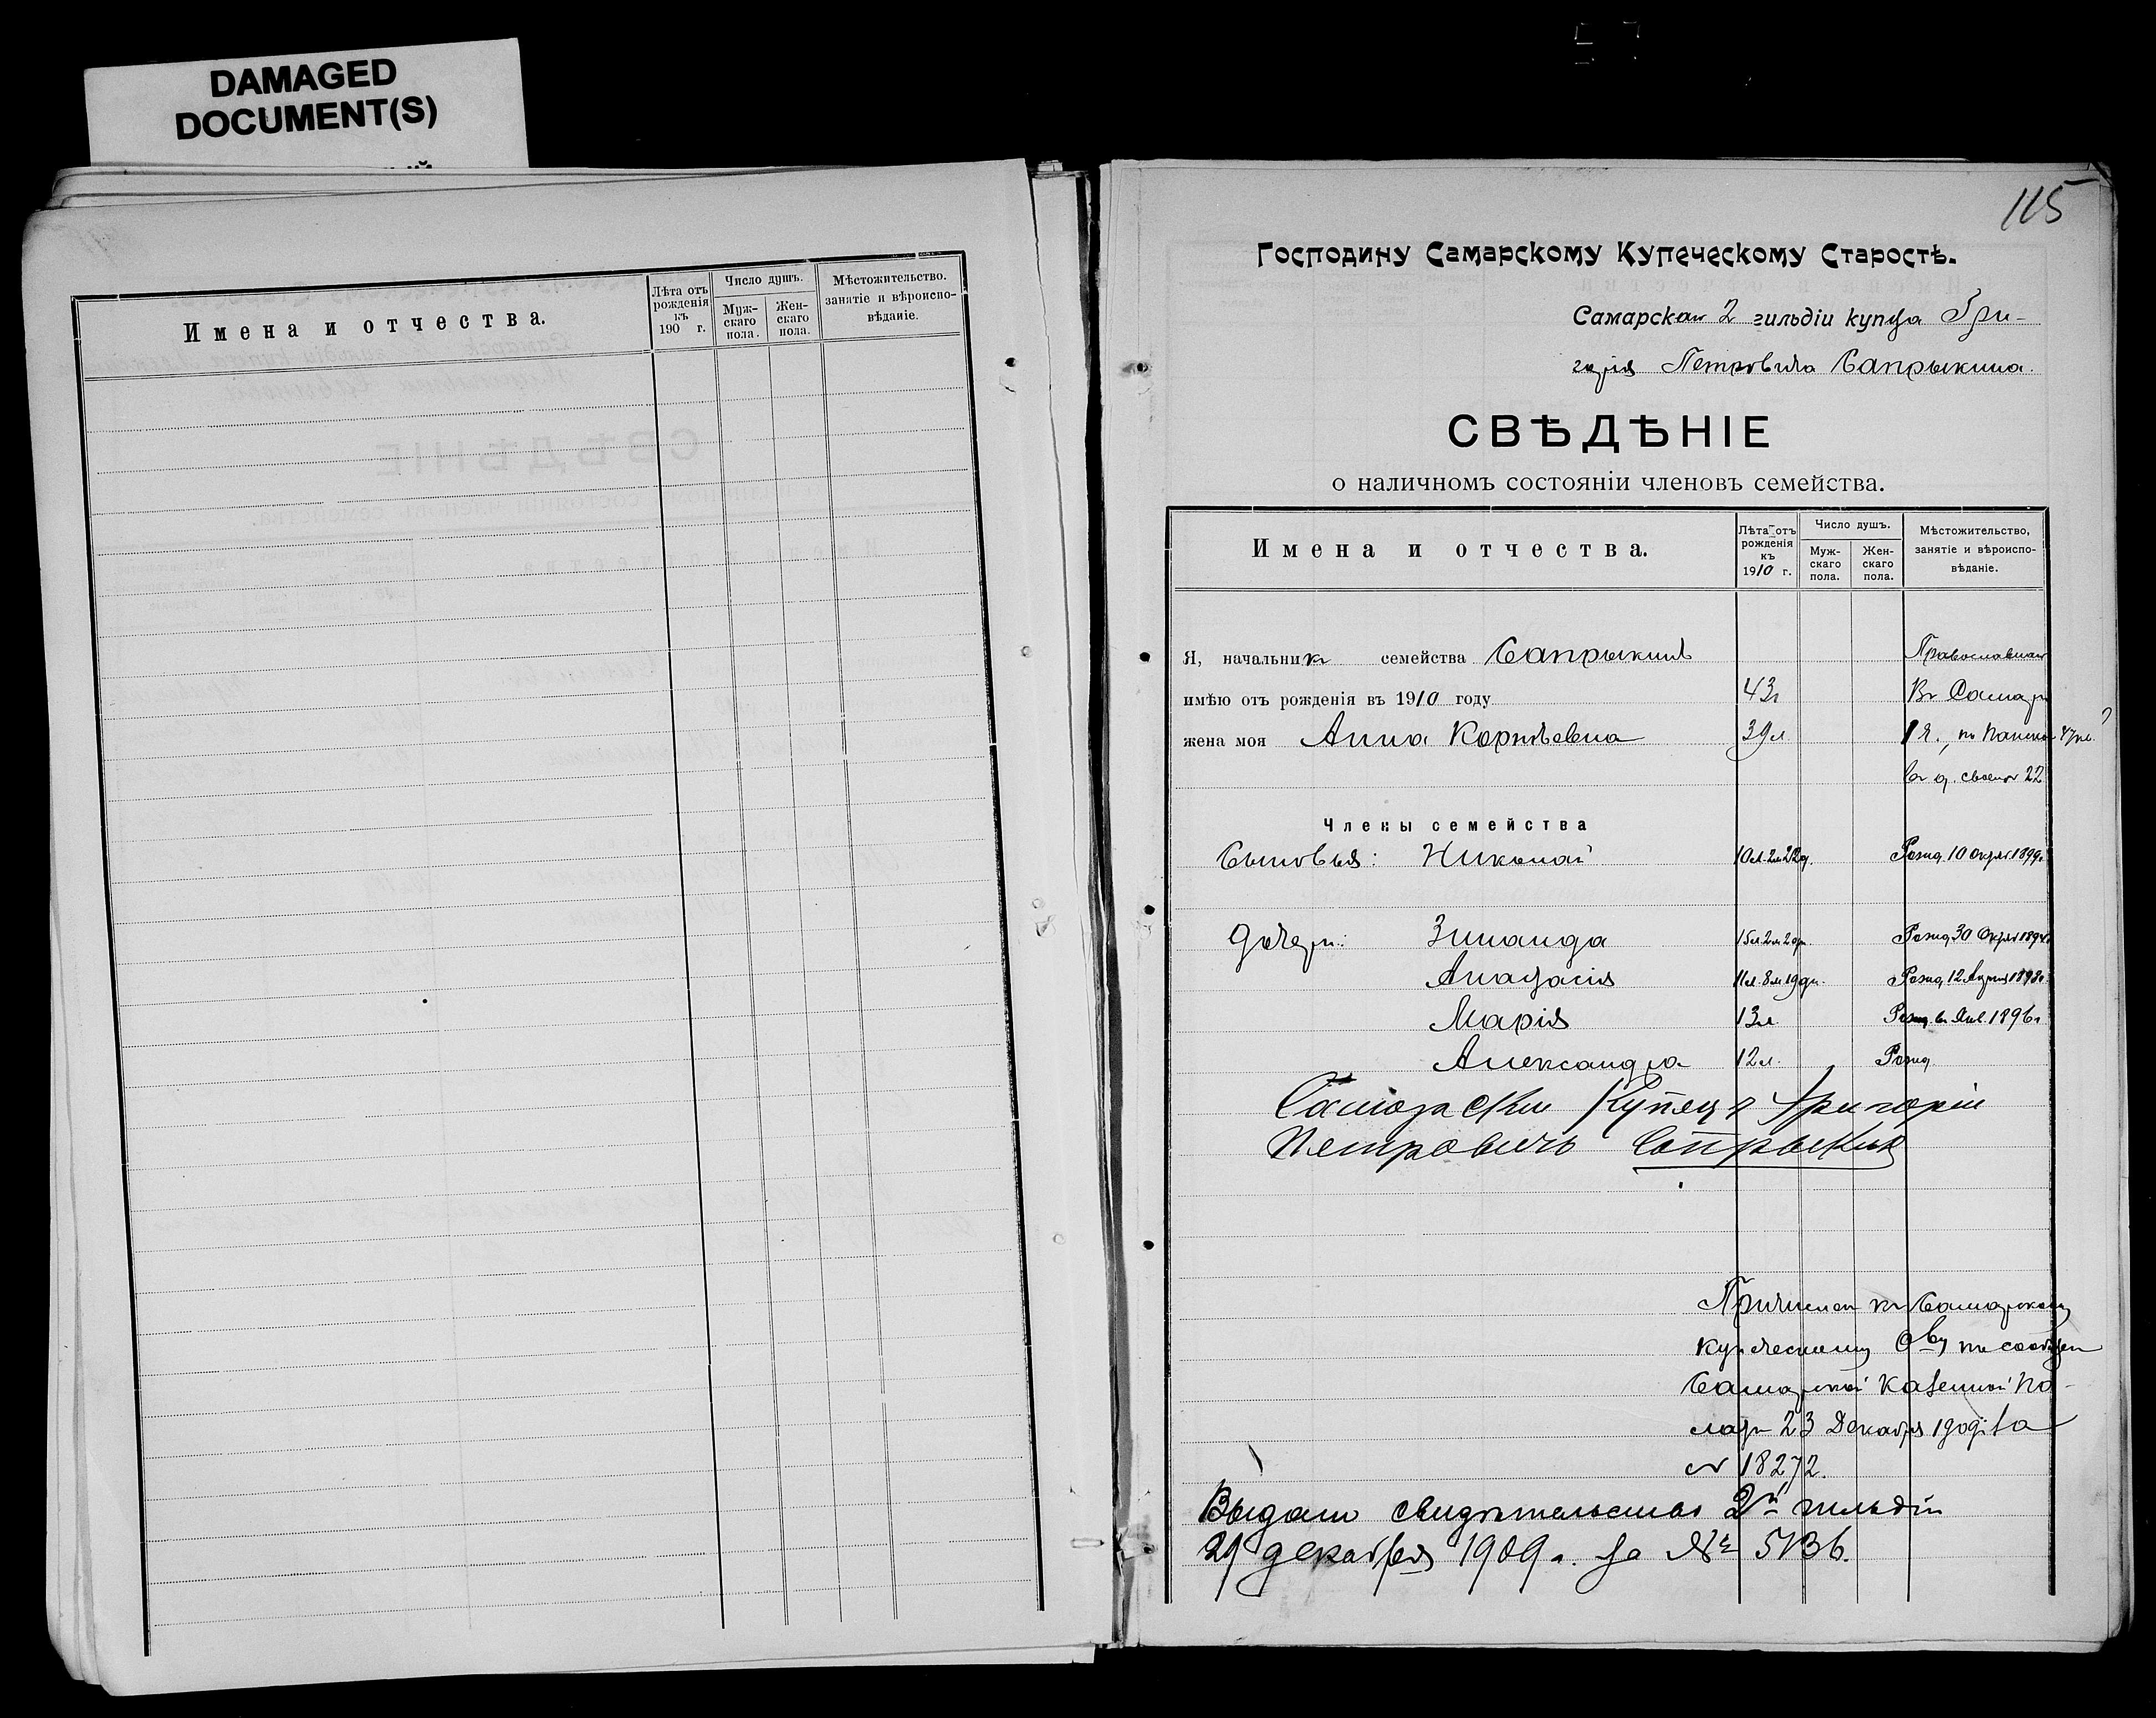 DAMAGED
DOCUMENT(S)
Имена и отчества.
Лѣта отъ рожденія къ 190 г.
Число душъ.
Муж-
скаго
пола.
Жен-
скаго
пола.
Мѣстожительство.
занятіе и вѣроиспо-
вѣданіе.
115
Господину Самарскому Купеческому Старостѣ.
Самарскаго 2 гильдіи купца Гри-
горія Петровича Сапрыкина.
СВѢДѢНІЕ
о наличномъ состояніи членовъ семейства.
Имена и отчества.
Лѣта отъ
рожденія
къ
1910 г.
Число душъ.
Муж-
скаго
пола.
Жен-
скаго
пола.
Мѣстожительство,
занятіе и вѣроиспо-
вѣданіе.
Я, начальникъ семейства Сапрыкинъ Православная
имѣю отъ рожденія въ 1910 году 43 г Въ Самарѣ
жена моя Анна Корнѣевна 39 л по
въ д. своемъ 22
Члены семейства
Сыновья: Николай 10 л. 2 м 22 д. Рожд. 10 Октяб. 1899 г.
Дочери: Зинаида 15 л 2 м 2 дн. Рожд 30 Октяб 1894 г.
Анастасія 11 л. 8 м 19 дн. Рожд. 12 Апрѣля 1898 г.
Марія 13 л. Рожд. въ Янв. 1896 г
Александра 12 л. Рожд.
Самарски Купецъ Григорій
Петровичъ Сапрыкин
Причислен къ Самарскому
купеческому Обву по сообщен
Самарской Казенной Па-
латы 23 Декабря 1909 г за
№ 18272.
Выдано свидѣтельство 2й гильдіи
29 декабря 1909 г. за № 5136.